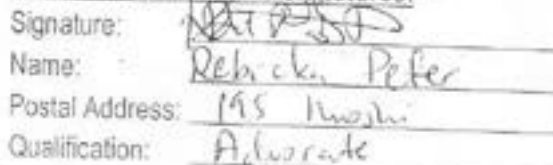 Signature:
Name: Rebicka Peter
Postal Address: 195 Moshi
Qualification: Advocate